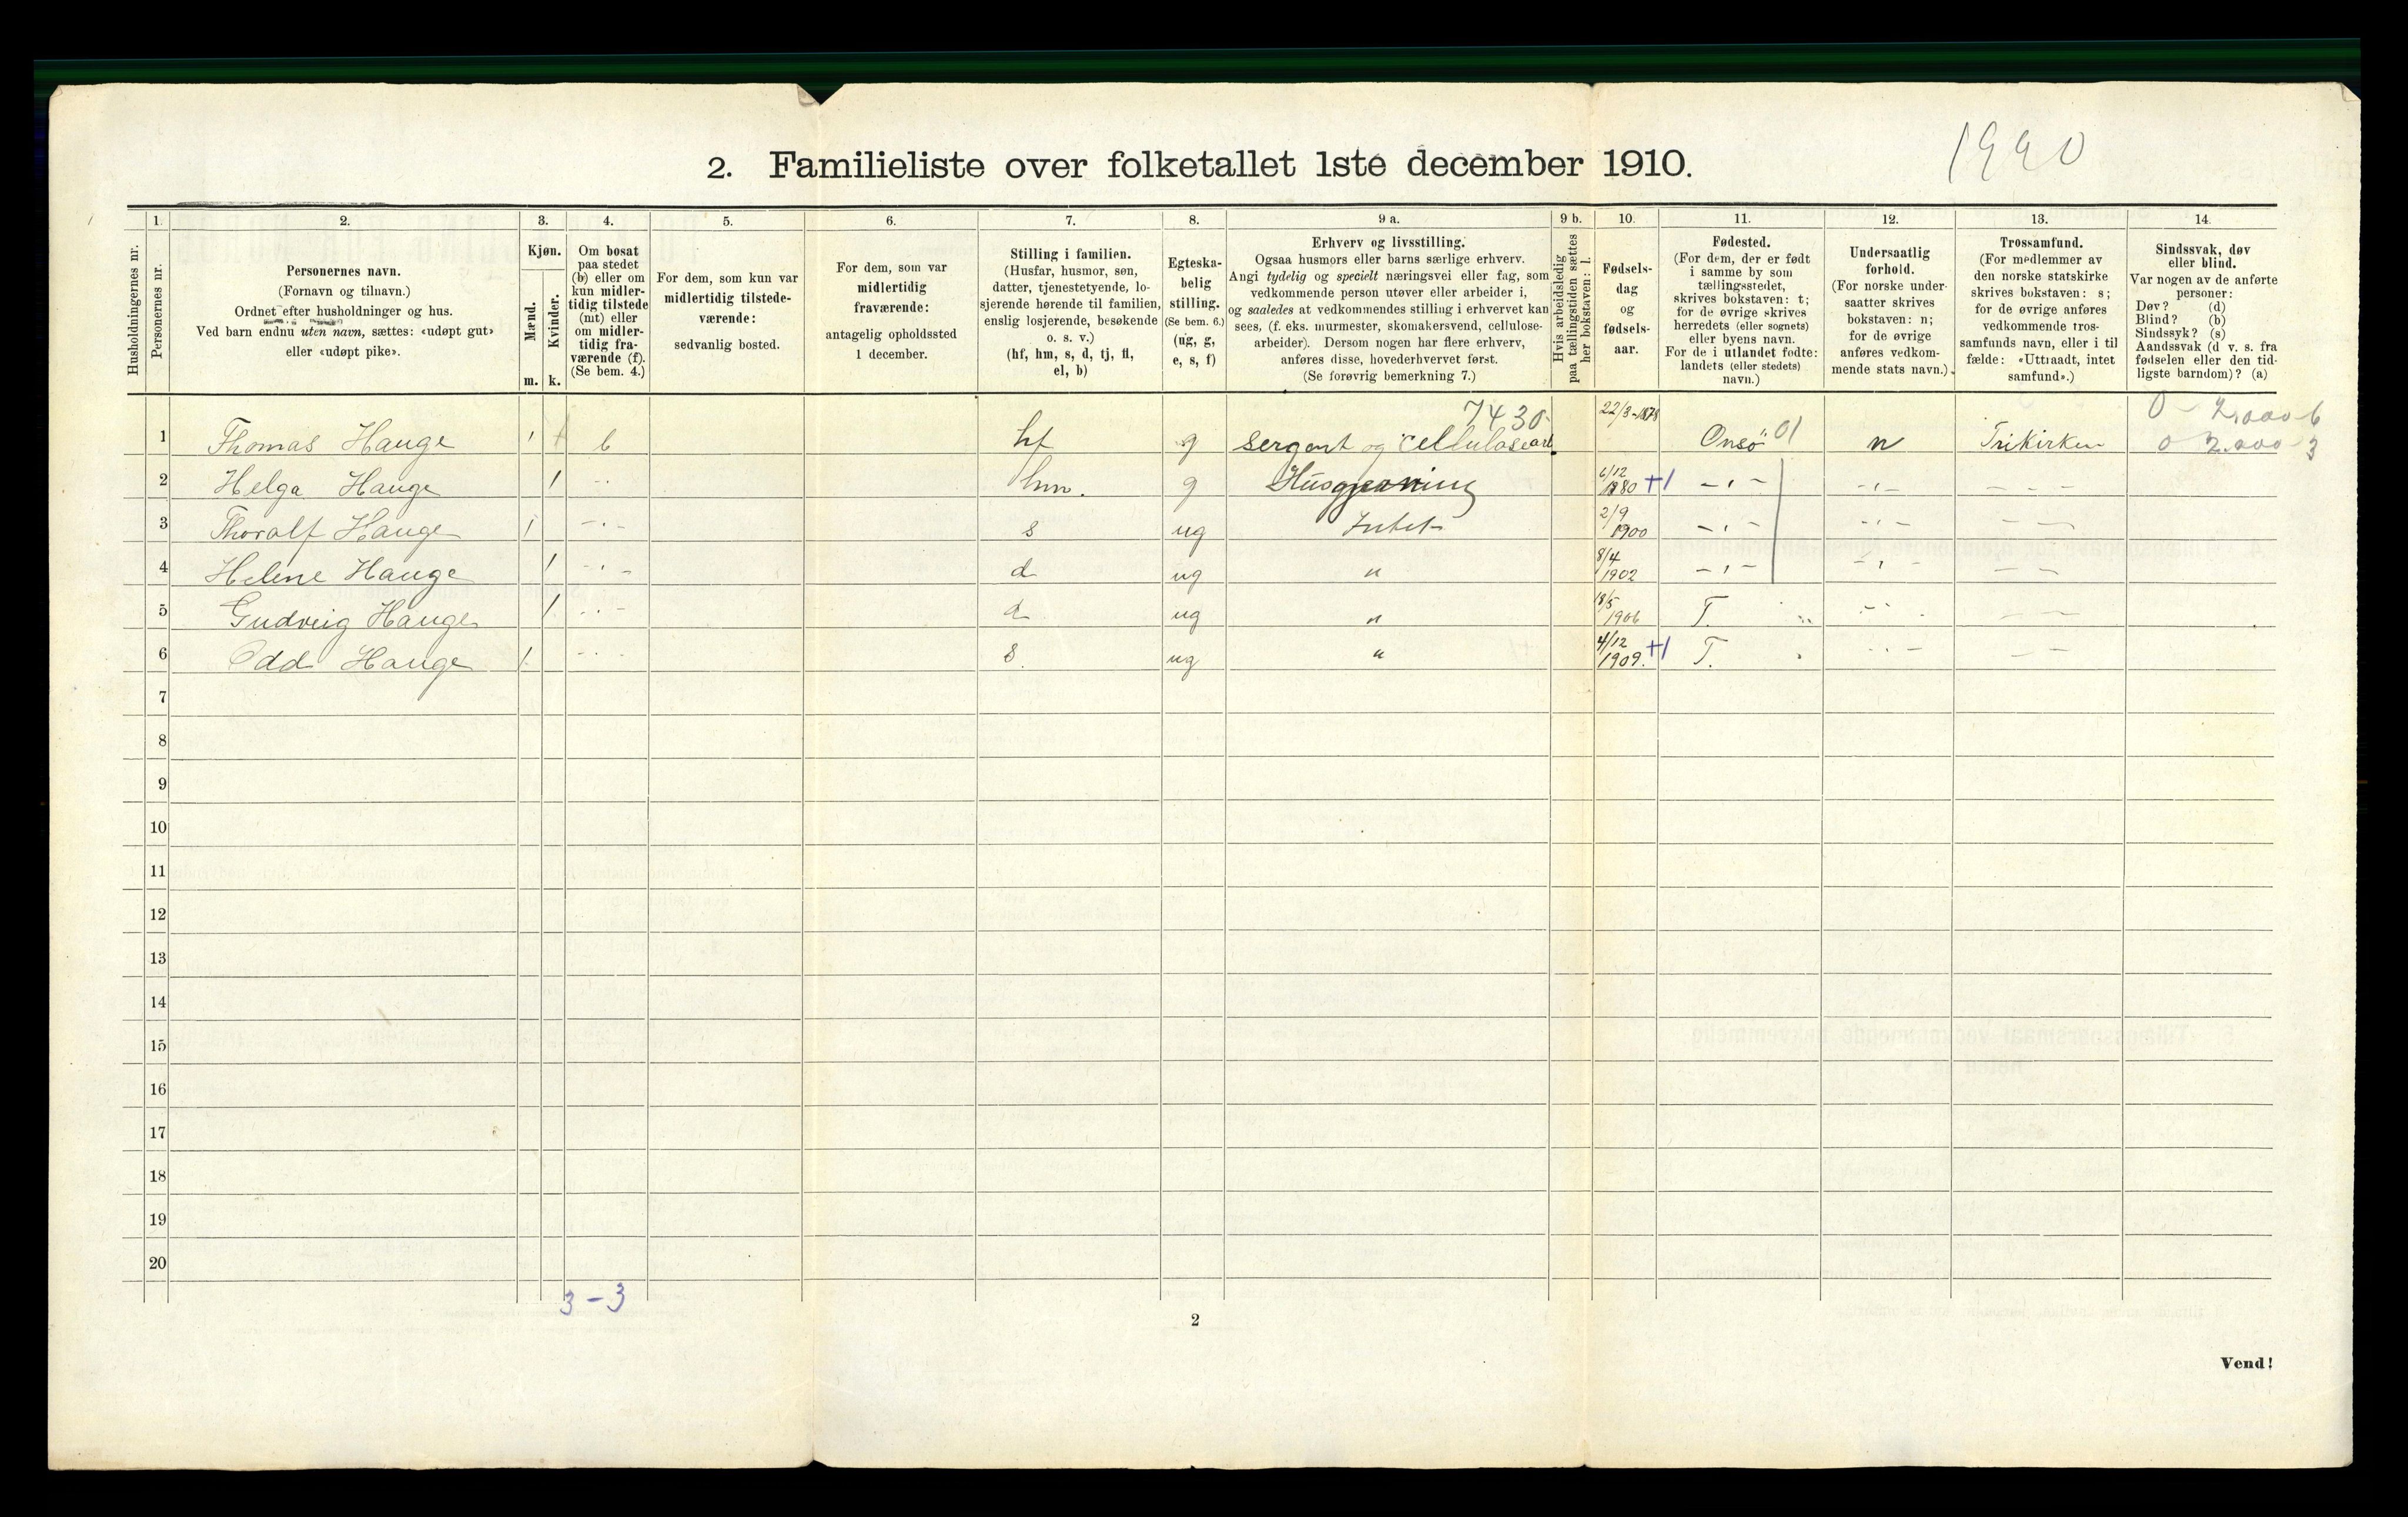 1990
2. Familieliste over folketallet 1ste december 1910.
1. 2. 3. 4. 5. 6. 7. 8. 9 a. 9 b. 10. 11. 12. 13. 14.
Husholdningernes nr.
Personernes nr.
Personernes navn.
(Fornavn og tilnavn.)
Ordnet efter husholdninger og hus.
Ved barn endnu uten navn, sættes: «udøpt gut»
eller «udøpt pike».
Kjøn.
Mænd.
Kvinder.
m. k.
Om bosat
paa stedet
(b) eller om
kun midler-
tidig tilstede
(mt) eller
om midler-
tidig fra-
værende (f).
(Se bem. 4.)
For dem, som kun var
midlertidig tilstede-
værende:
sedvanlig bosted.
For dem, som var
midlertidig
fraværende:
antagelig opholdssted
1 december.
Stilling i familien.
(Husfar, husmor, søn,
datter, tjenestetyende, lo-
sjerende hørende til familien,
enslig losjerende, besøkende
o. s. v.)
(hf, hm, s, d, tj, fl,
el, b)
Egteska-
belig
stilling.
(Se bem. 6.)
(ug, g,
e, s, f)
Erhverv og livsstilling.
Ogsaa husmors eller barns særlige erhverv.
Angi tydelig og specielt næringsvei eller fag, som
vedkommende person utøver eller arbeider i,
og saaledes at vedkommendes stilling i erhvervet kan
sees, (f. eks. murmester, skomakersvend, cellulose-
arbeider). Dersom nogen har flere erhverv,
anføres disse, hovederhvervet først.
(Se forøvrig bemerkning 7.)
Hvis arbeidsledig
paa tællingstiden sættes
her bokstaven: l.
Fødsels-
dag
og
fødsels-
aar.
Fødested.
(For dem, der er født
i samme by som
tællingsstedet,
skrives bokstaven: t;
for de øvrige skrives
herredets (eller sognets)
eller byens navn.
For de i utlandet fødte:
landets (eller stedets)
navn.)
Undersaatlig
forhold.
(For norske under-
saatter skrives
bokstaven: n;
for de øvrige
anføres vedkom-
mende stats navn.)
Trossamfund.
(For medlemmer av
den norske statskirke
skrives bokstaven: s;
for de øvrige anføres
vedkommende tros-
samfunds navn, eller i til-
fælde: «Uttraadt, intet
samfund».)
Sindssvak, døv
eller blind.
Var nogen av de anførte
personer:
Døv? (d)
Blind? (b)
Sindssyk? (s)
Aandssvak (d v. s. fra
fødselen eller den tid-
ligste barndom)? (a)
7430 22/3-1878 0 - 2.000-6
1 Thomas Hauge 1 b hf g Sergent og cellulosearb. Onsø 01 n Frikirken 0 2.000-3
2 Helga Hauge 1 - - hm. g Husgjerning 6/12 1880 +1 - „ - - „ - - - -
3 Thoralf Hauge 1 - „ - s ug Intet 2/9 1900 - „ - - „ - - -
4 Helene Hauge 1 - „ - d ug " 8/4 1902 - „ - - „ - - -
5 Gudveig Hauge 1 - „ - d ug " 18/5 1906 T. - „ - - -
6 Odd Hauge 1 - „ - s. ug " 4/12 1909. +1 T. - „ - - -
7
8
9
10
11
12
13
14
15
16
17
18
19
20
3 - 3
2
Vend!